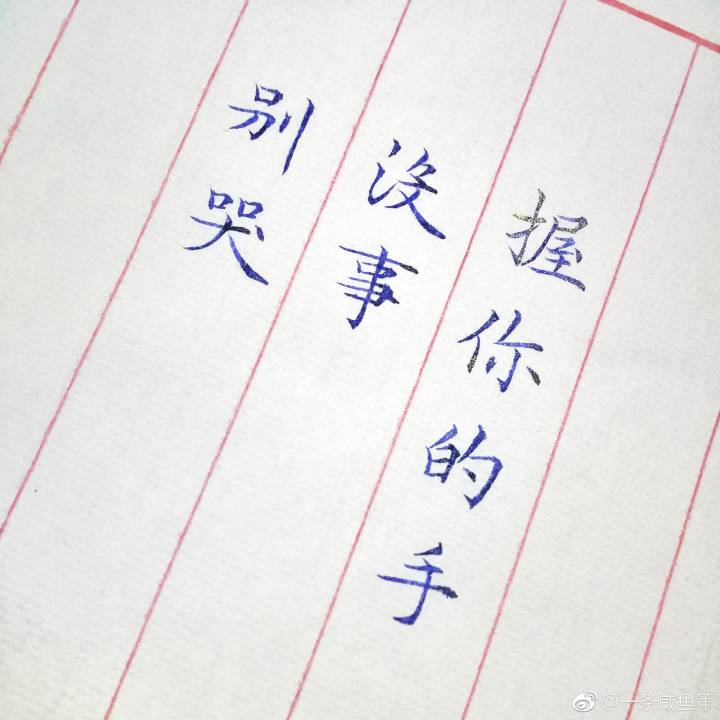 握你的手
没事
别哭
@一条咸鱼第